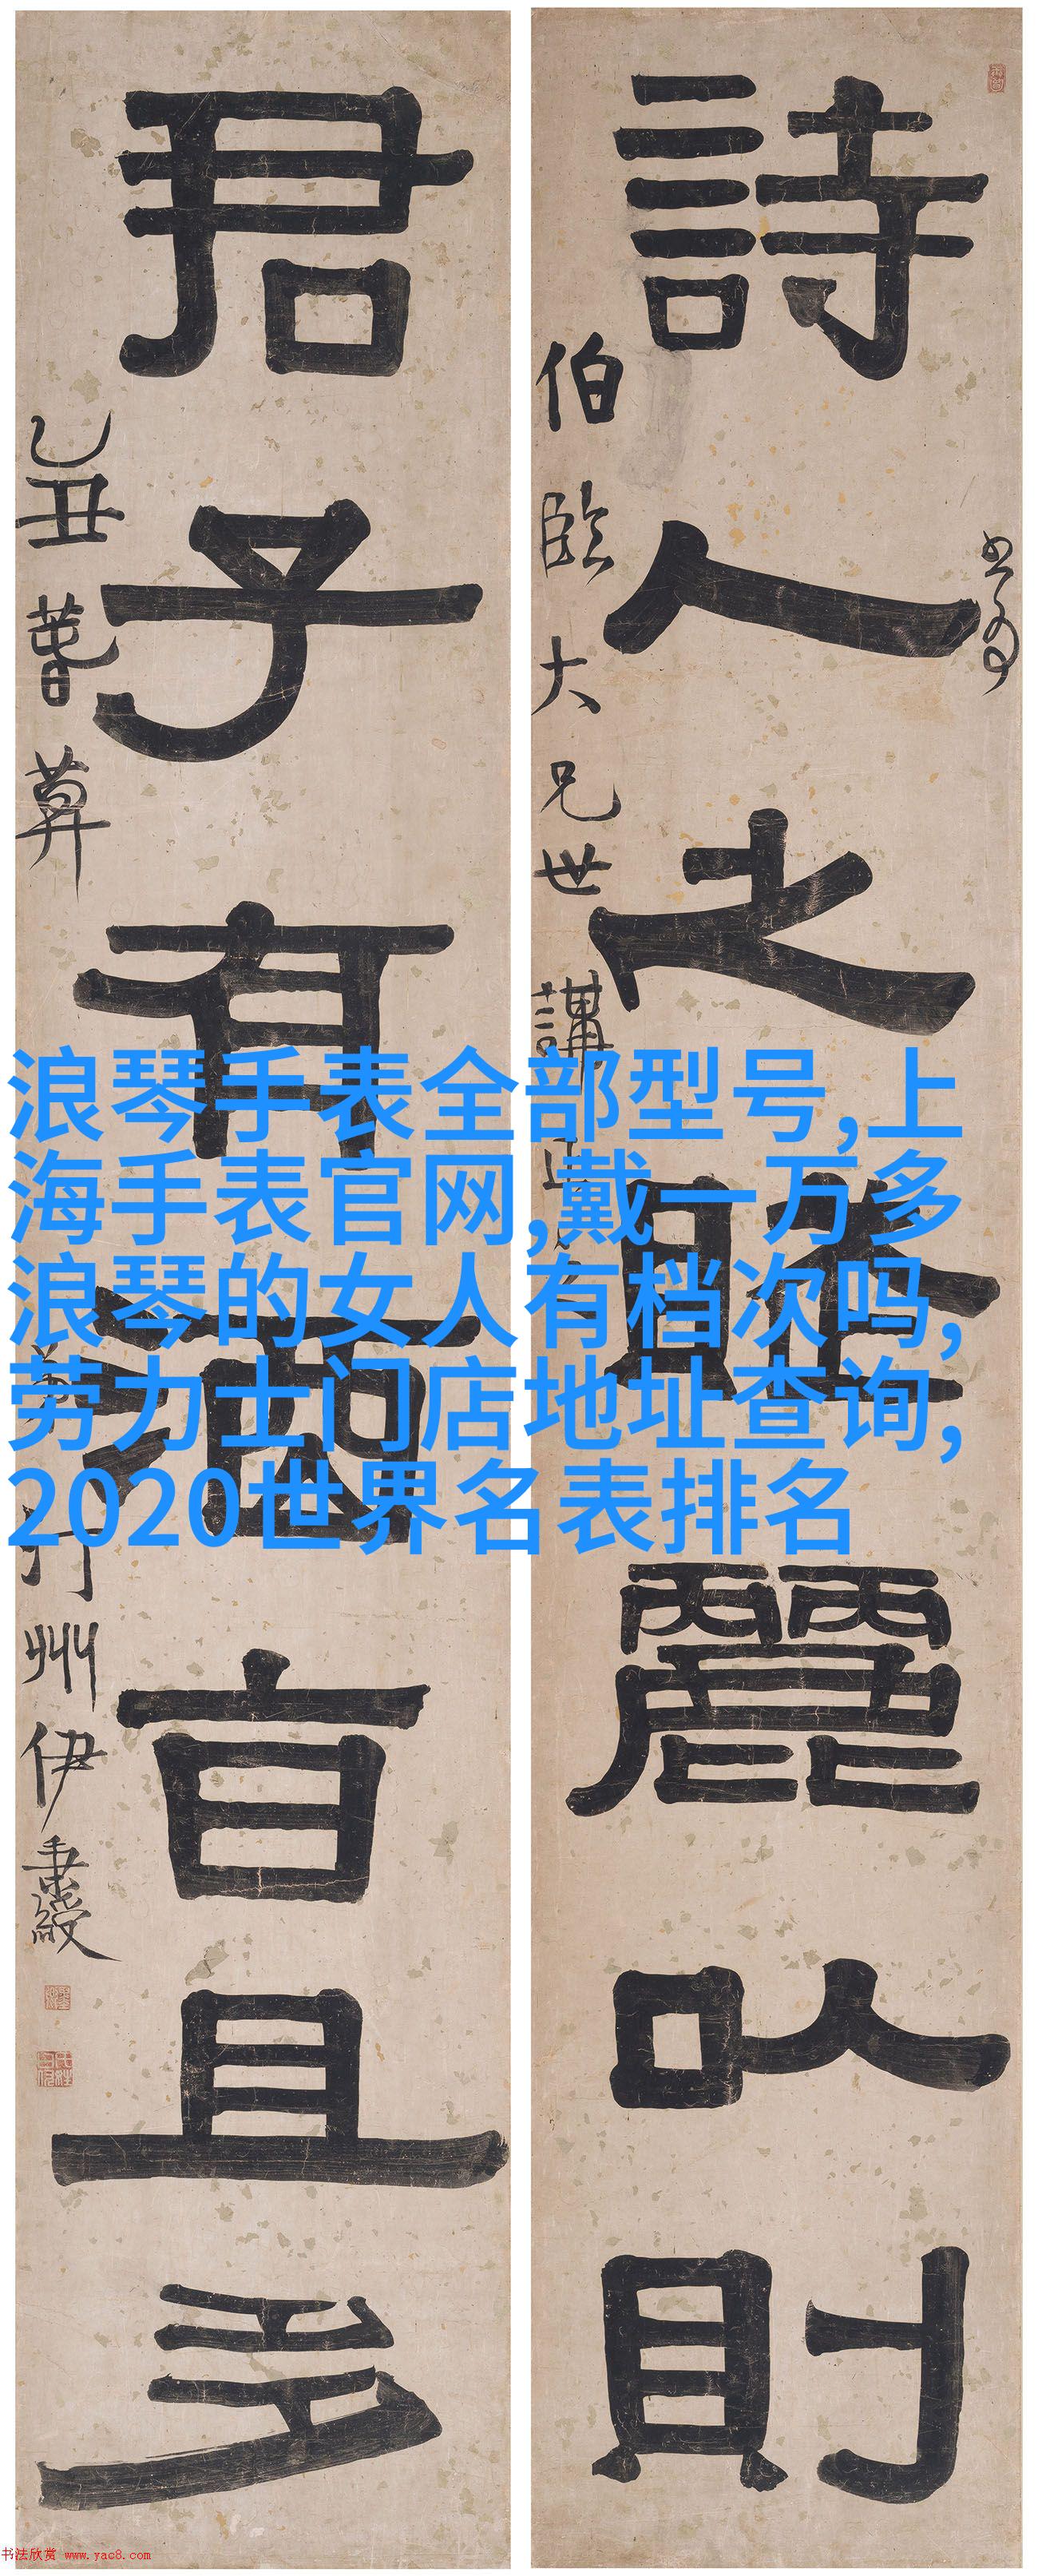 詩人之賦麗以則
書為
伯臨大兄世講正
君子有酒旨且多
乙丑
汀州伊秉綬
浪琴手表全部型号,上
海手表官网,戴一万多
浪琴的女人有档次吗,
劳力士门店地址查询,
2020世界名表排名
书法欣赏 www.yac8.com